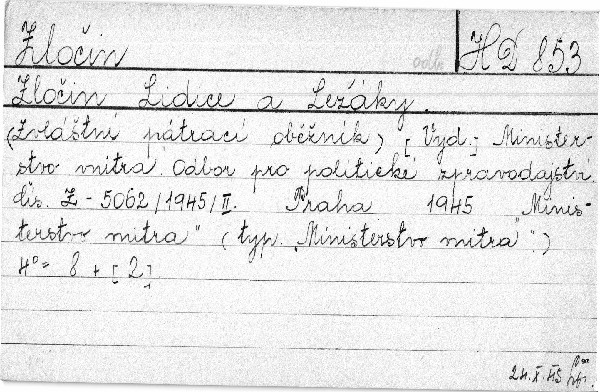 Zločin
odb.
HD 853
Zločin Lidice a Ležáky.
(Zvláštní pátrací oběžník) [Vyd.] Minister-
stvo vnitra. Odbor pro politické zpravodajství.
čís. Z - 5062/1945/II. Praha 1945 "Minis-
terstvo vnitra" (typ. "Ministerstvo vnitra".)
4° = 8 + [2]
24.X.45